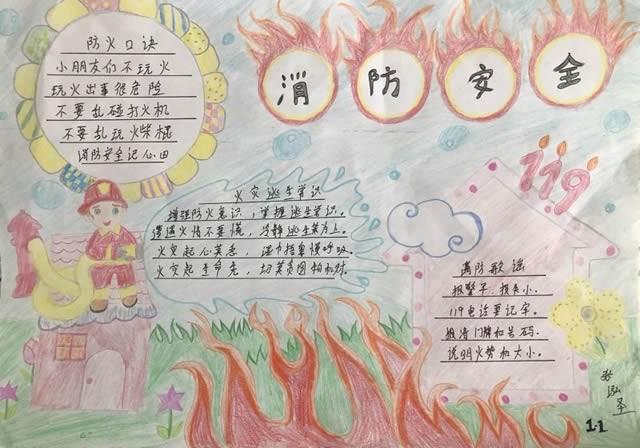 消防安全
防火口诀
小朋友们不玩火
玩火出事很危险
不要乱碰打火机
不要乱玩火柴棍
消防安全记心田
119
火灾逃生常识
增强防火意识,掌握逃生常识。
遭遇火情不要慌,冷静逃生莫为上。
火灾起心莫悉,湿巾捂鼻慢呼吸。
火灾起
消防歌谣
报警早,损失小。
119电话要记牢。
报清门牌和号码。
说明火势和大小。
1.1